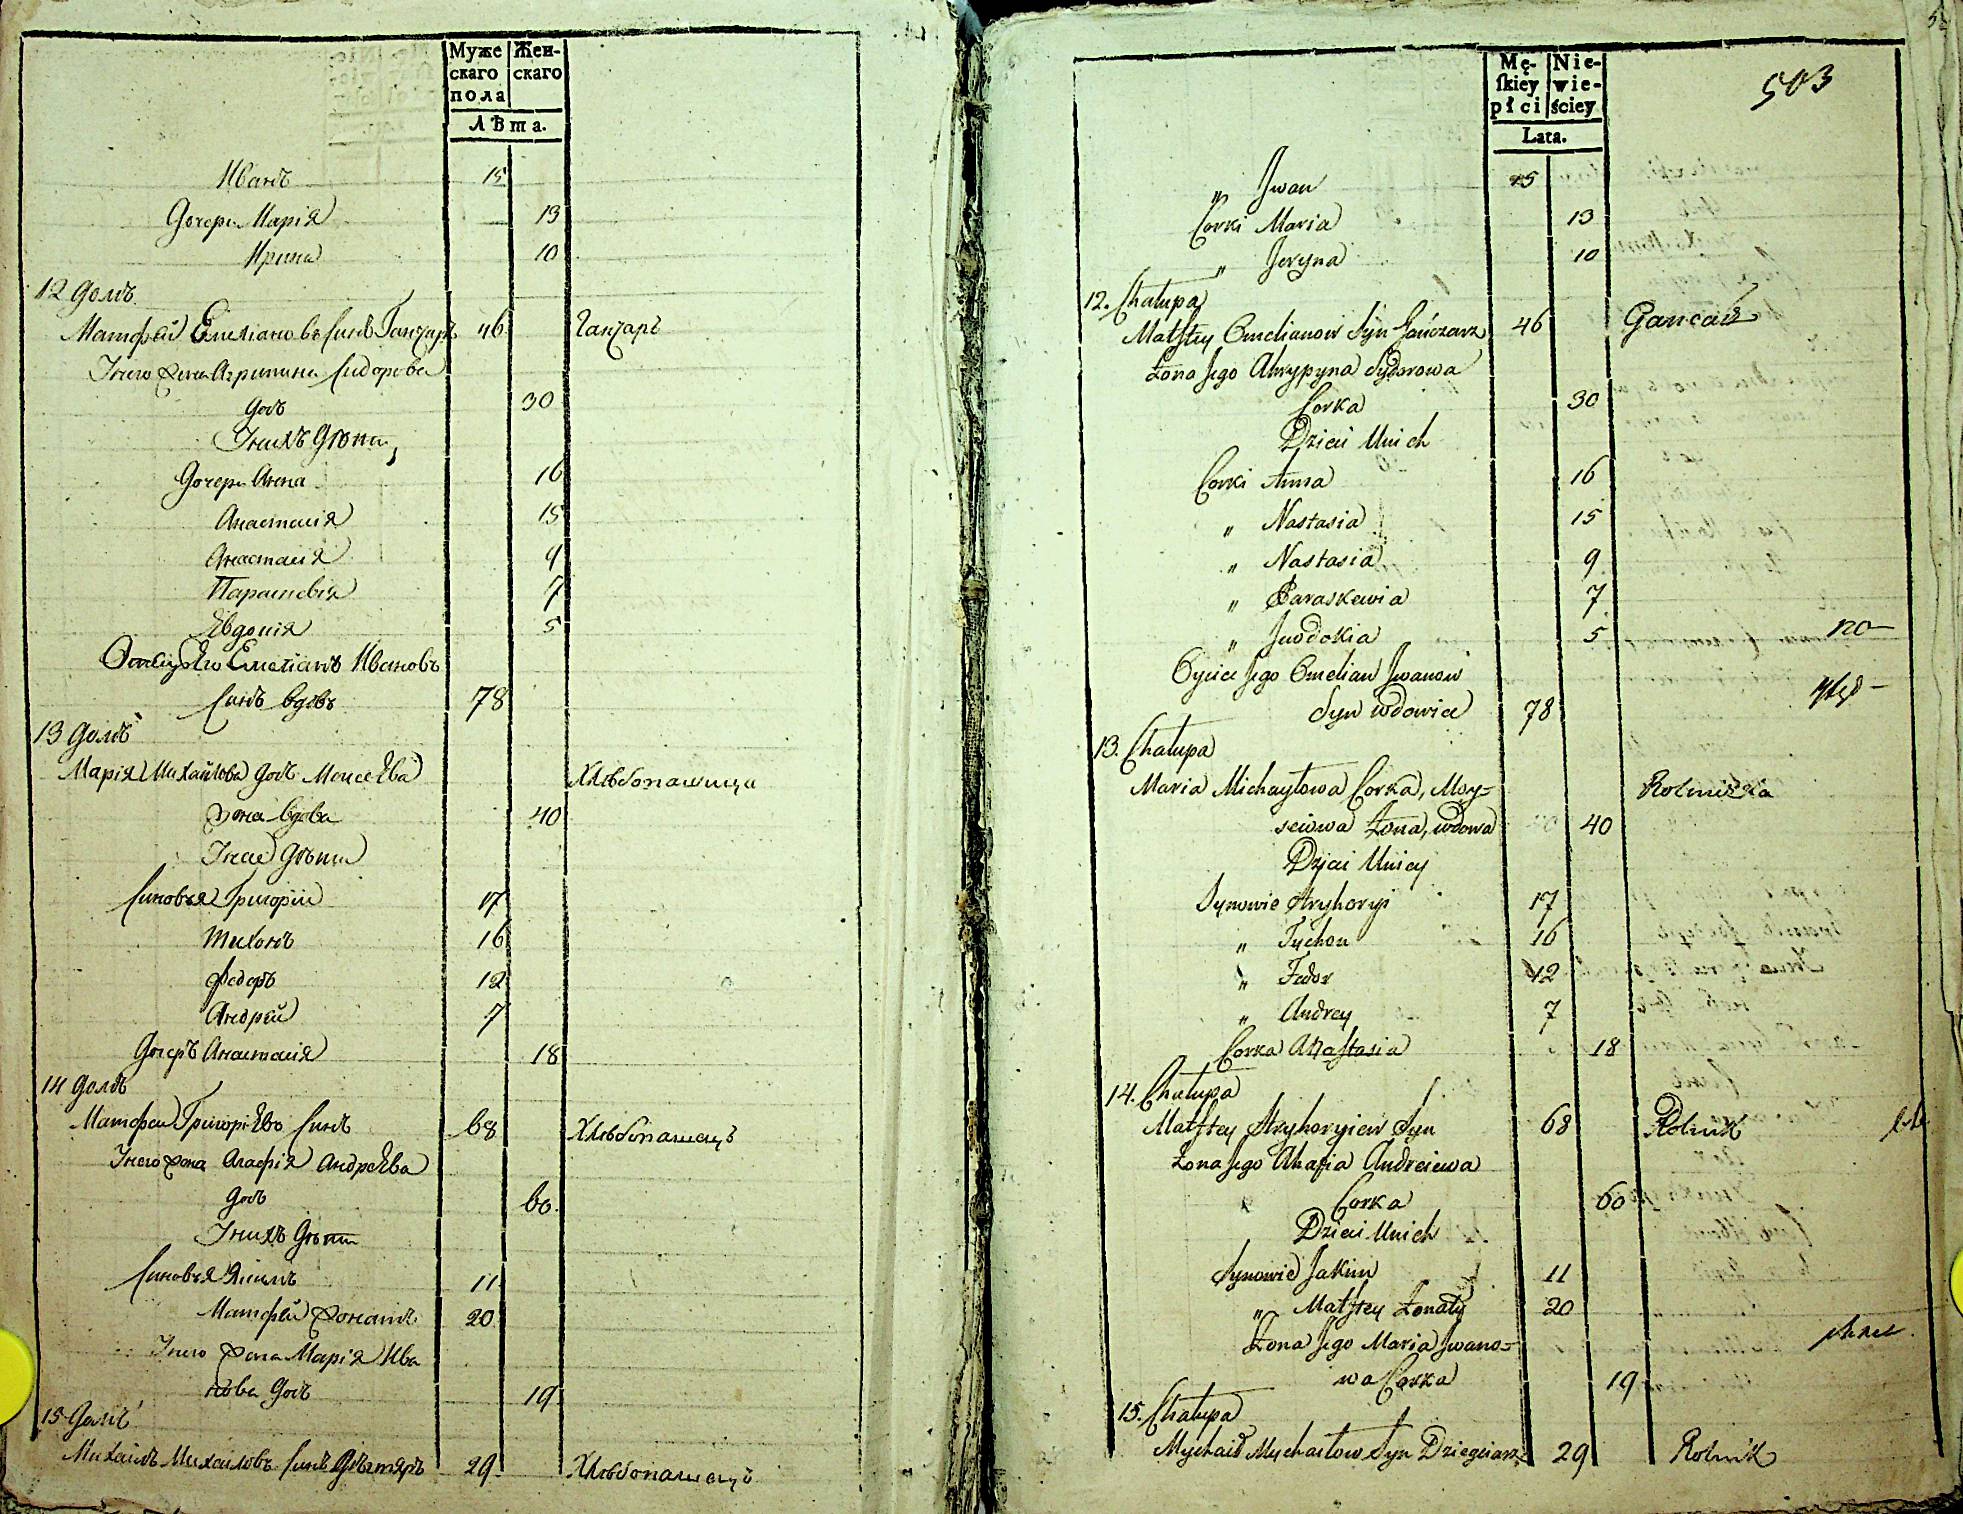 Муже Жен-
скаго скаго
пола
Лѣта.
Иванъ 15
Дочери Марія 13
Ирина 10
12 домъ
Матфѣй Емеліановъ синъ Ганчаръ 46 Ганчаръ
У него жена Агрипина Сидорова
дочъ 30
У нихъ дѣти,
Дочери Анна 16
Анастасія 15
Анастасія 9
Параскевія 7
Евдокія 5
Отецъ Его Емеліанъ Ивановъ
синъ вдовъ 78
13 домъ
Марія Михайлова дочъ Моисеѣва Хлѣбопашица
жона вдова 40
У нее дѣти
Синовья Григорій 17
Тихонъ 16
Федоръ 12
Андрѣй 7
Дочеръ Анастасія 18
14 домъ
Матфей Григоріевъ синъ 68 Хлѣбопашецъ
У него жена Агафія Андреѣва
дочъ 60
У нихъ дѣти
Синовья Якимъ 11
Матфѣй жонатъ 20
У него жена Марія Ива
нова дочъ 19
15 домъ
Михаилъ Михаиловъ синъ Дѣгтяръ 29 Хлѣбопашецъ
Mę- Nie-
skiey wie-
płci ściey
Lata.
503
„ Jwan 15
Corki Maria 13
„ Jeryna 10
12. Chałupa
Matftey Omelianow Syn Gańczarz 46 Gancarz
Żona Jego Ahrypyna Sydorowa
Corka 30
Dzieci Unich
Corki Anna 16
„ Nastasia 15
„ Nastasia 9
„ Paraskewia 7
„ Jwdokia 5 no-
Oyciec Jego Omelian Jwanow
Syn wdowiec 78
13. Chałupa
Maria Michayłowa Corka, Moy= Rolniczka
seiowa Żona, wdowa 40
Dzieci Uniey
Synowie Hryhoryi 17
„ Tychon 16
„ Fedor 12
„ Andrey 7
Corka Anastasia 18
14. Chałupa
Matftey Hryhoryiew Syn 68 Rolnik
Żona Jego Ahafia Andreiewa
Corka 60
Dzieci Unich
Synowie Jakim 11
„ Matftey Żonaty 20
Żona Jego Maria Jwano=
wa Corka 19
15. Chałupa
Mychaił Mychaiłow Syn Dziegciarz 29 Rolnik